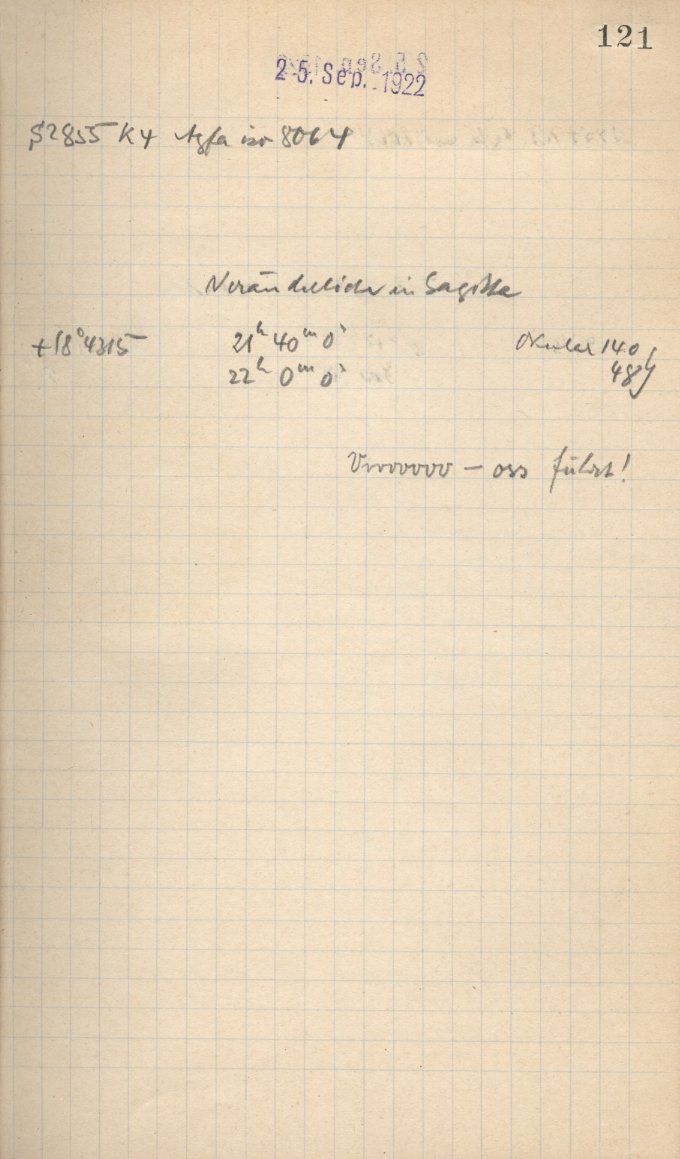 121
25. Sep. 1922
S2855 K4 Agfa iso 8064
Veränderlicher in Sagitta
+18°4315 21h 40m 0s Okular 140
22h 0m 0s 48
Vrrooooo — oss führt!